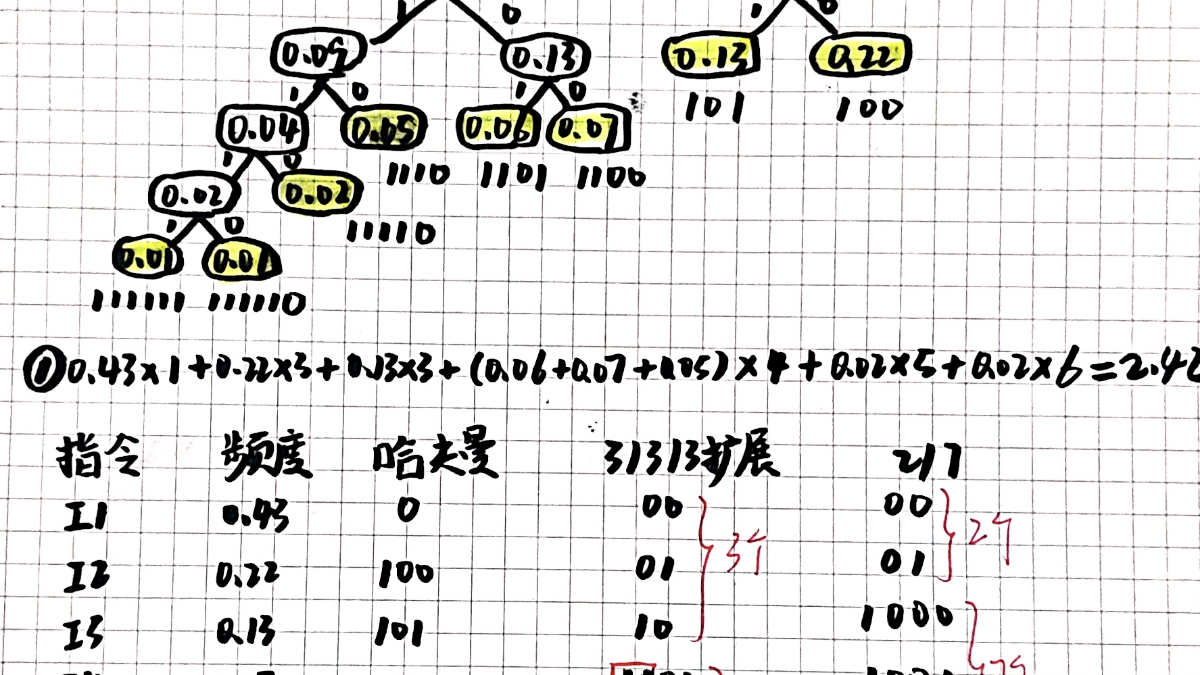 1 0 1 0
0.09 0.13 0.13 0.22
1 0 1 0 101 100
0.04 0.05 0.06 0.07
1 0 1110 1101 1100
0.02 0.02
1 0 11110
0.01 0.01
111111 111110
① 0.43×1+0.22×3+0.13×3+(0.06+0.07+0.05)×4+0.02×5+0.02×6=2.42
指令 频度 哈夫曼 3/3/3扩展 2/7
I1 0.43 0 00 00
3个 2个
I2 0.22 100 01 01
I3 0.13 101 10 1000